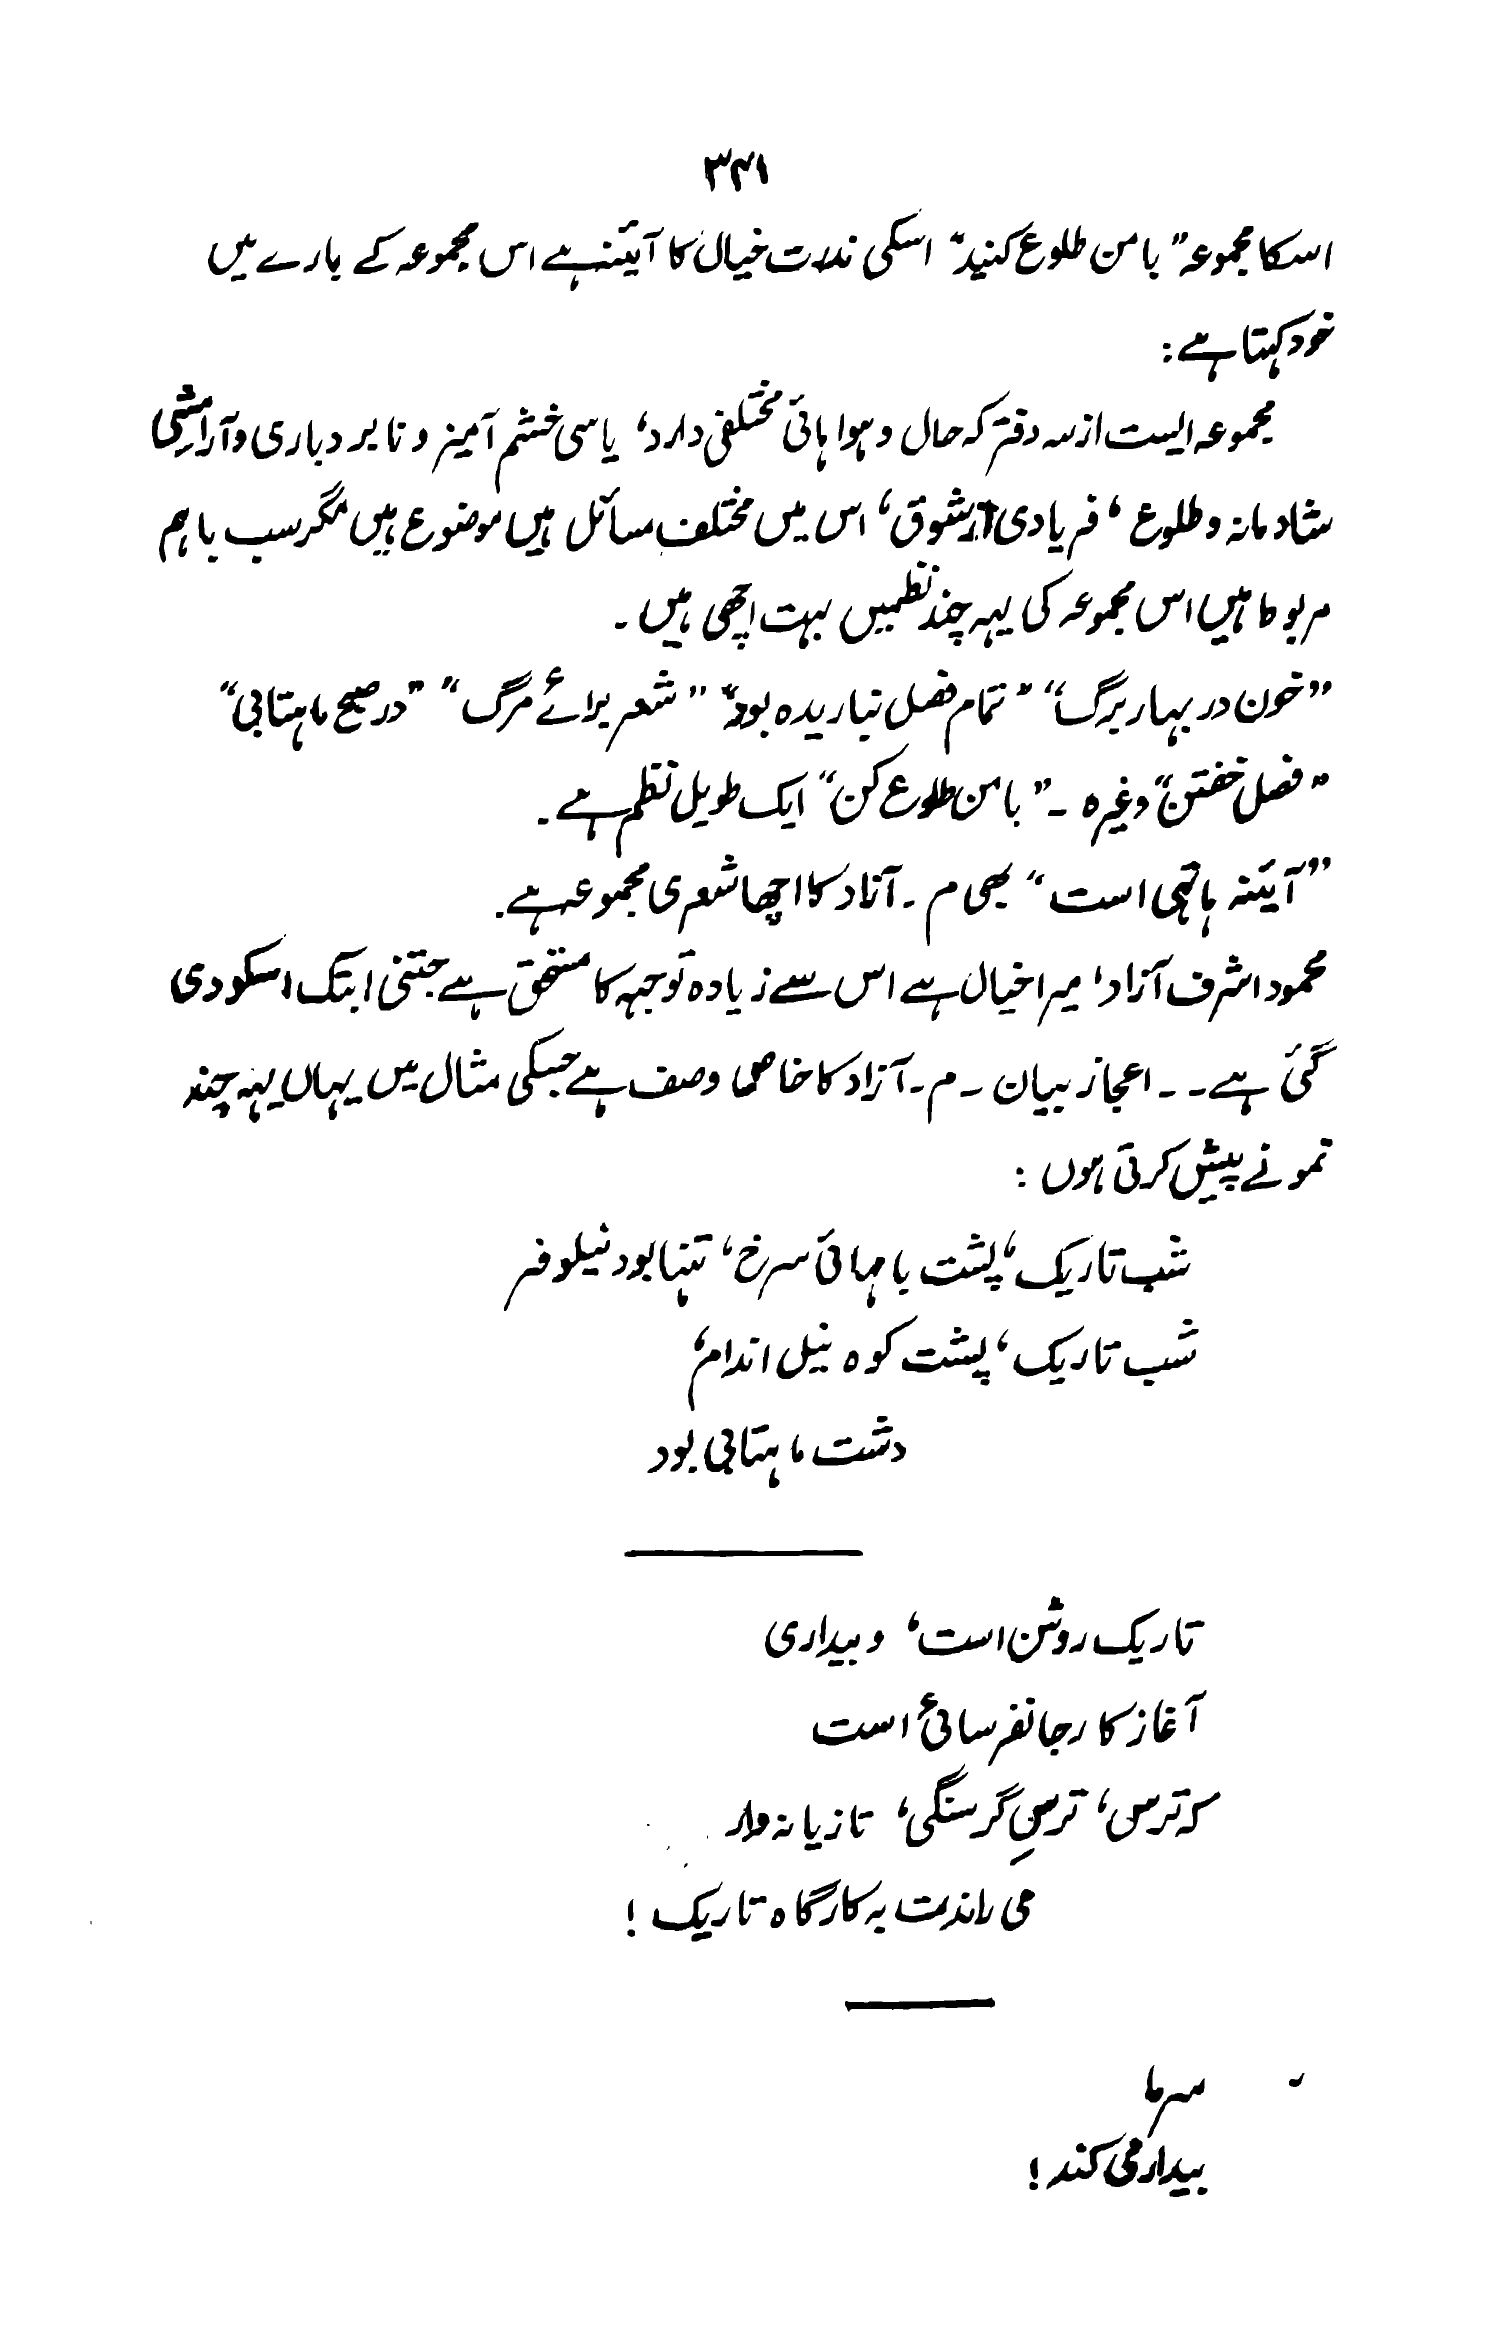 ۳۴۱
اسکا مجموعہ "بامن طلوع کنید" اسکی ندرت خیال کا آیئنہ ہے اس مجموعہ کے بارے میں
خود کہتا ہے :
مجموعہ الیست از سہ دفتر کہ حال و ہوا ہائی مختلفی دارد، یاسی خشم آمیز و نابردباری و آرامشی
شادمانہ و طلوع، فریادی از شوق، اس میں مختلف مسائل ہیں موضوع ہیں مگر سب باہم
مربوط ہیں اس مجموعہ کی یہہ چند نظمیں بہت اچھی ہیں ۔
"خون در بہار برگ" "تمام فصل نباریدہ بود" "شعر برائے مرگ" "در صبح ماہتابی"
"فصل خفتن" وغیرہ ۔ "بامن طلوع کن" ایک طویل نظم ہے ۔
"آیئنہ ہا تہی است" بھی م ۔ آزاد کا اچھا شعری مجموعہ ہے ۔
محمود اشرف آزاد، میرا خیال ہے اس سے زیادہ توجہہ کا مستحق ہے جتنی ابتک اسکو دی
گئی ہے ۔ ۔ اعجاز بیان ۔ م ۔ آزاد کا خاصا وصف ہے جسکی مثال میں یہاں یہہ چند
نمونے پیش کرتی ہوں :
شب تاریک، پشت بامہائی سرخ، تنہا بود نیلوفر
شب تاریک، پشت کوہ نیل اندام،
دشت ماہتابی بود
تاریک روشن است، و بیداری
آغاز کار جانفرسائی است
کہ ترس، ترسِ گرسنگی، تازیانہ وار
می راندت بہ کارگاہ تاریک !
سرما
بیدار می کند !